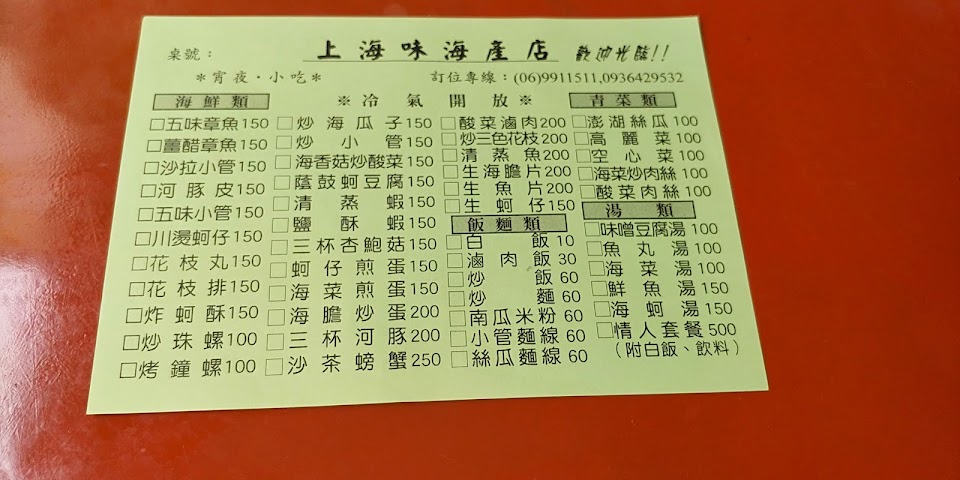 桌號： 上海味海產店 歡迎光臨!!
＊宵夜・小吃＊ 訂位專線：(06)9911511,0936429532
※冷氣開放※
海鮮類
□五味章魚150
□薑醋章魚150
□沙拉小管150
□河豚皮150
□五味小管150
□川燙蚵仔150
□花枝丸150
□花枝排150
□炸蚵酥150
□炒珠螺100
□烤鐘螺100
□炒海瓜子150
□炒小管150
□海香菇炒酸菜150
□蔭鼓蚵豆腐150
□清蒸蝦150
□鹽酥蝦150
□三杯杏鮑菇150
□蚵仔煎蛋150
□海菜煎蛋150
□海膽炒蛋200
□三杯河豚200
□沙茶螃蟹250
□酸菜滷肉200
□炒三色花枝200
□清蒸魚200
□生海膽片200
□生魚片200
□生蚵仔150
飯麵類
□白飯10
□滷肉飯30
□炒飯60
□炒麵60
□南瓜米粉60
□小管麵線60
□絲瓜麵線60
青菜類
□澎湖絲瓜100
□高麗菜100
□空心菜100
□海菜炒肉絲100
□酸菜肉絲100
湯類
□味噌豆腐湯100
□魚丸湯100
□海菜湯100
□鮮魚湯150
□海蚵湯150
□情人套餐500
（附白飯、飲料）